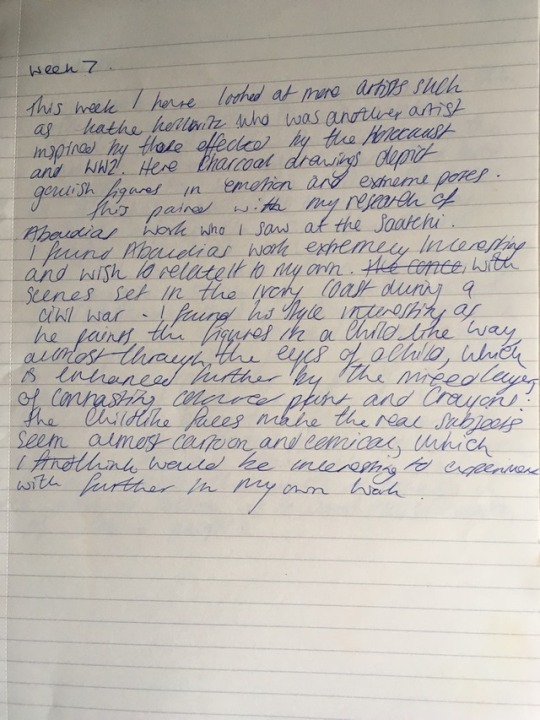 Week 7.
This week I have looked at more artists such
as kathe kollowitz who was another artist
inspired by those effected by the holocaust
and WW2. Here charcoal drawings depict
figures in emotion and extreme poses.
This paired with my research of
Aboudias work who I saw at the Saatchi.
I found Aboudias work extremely Interesting
and wish to relate it to my own. with
scenes set in the Ivory Coast during a
civil war. I found his style interesting as
he paints the figures in a child like way
almost through the eyes of a child, which
is enhanced further by the mixed layers
of contrasting coloured paint and crayons.
The childlike faces make the real subjects
seem almost cartoon and comical, which
I think would be interesting to experiment
with further in my own work